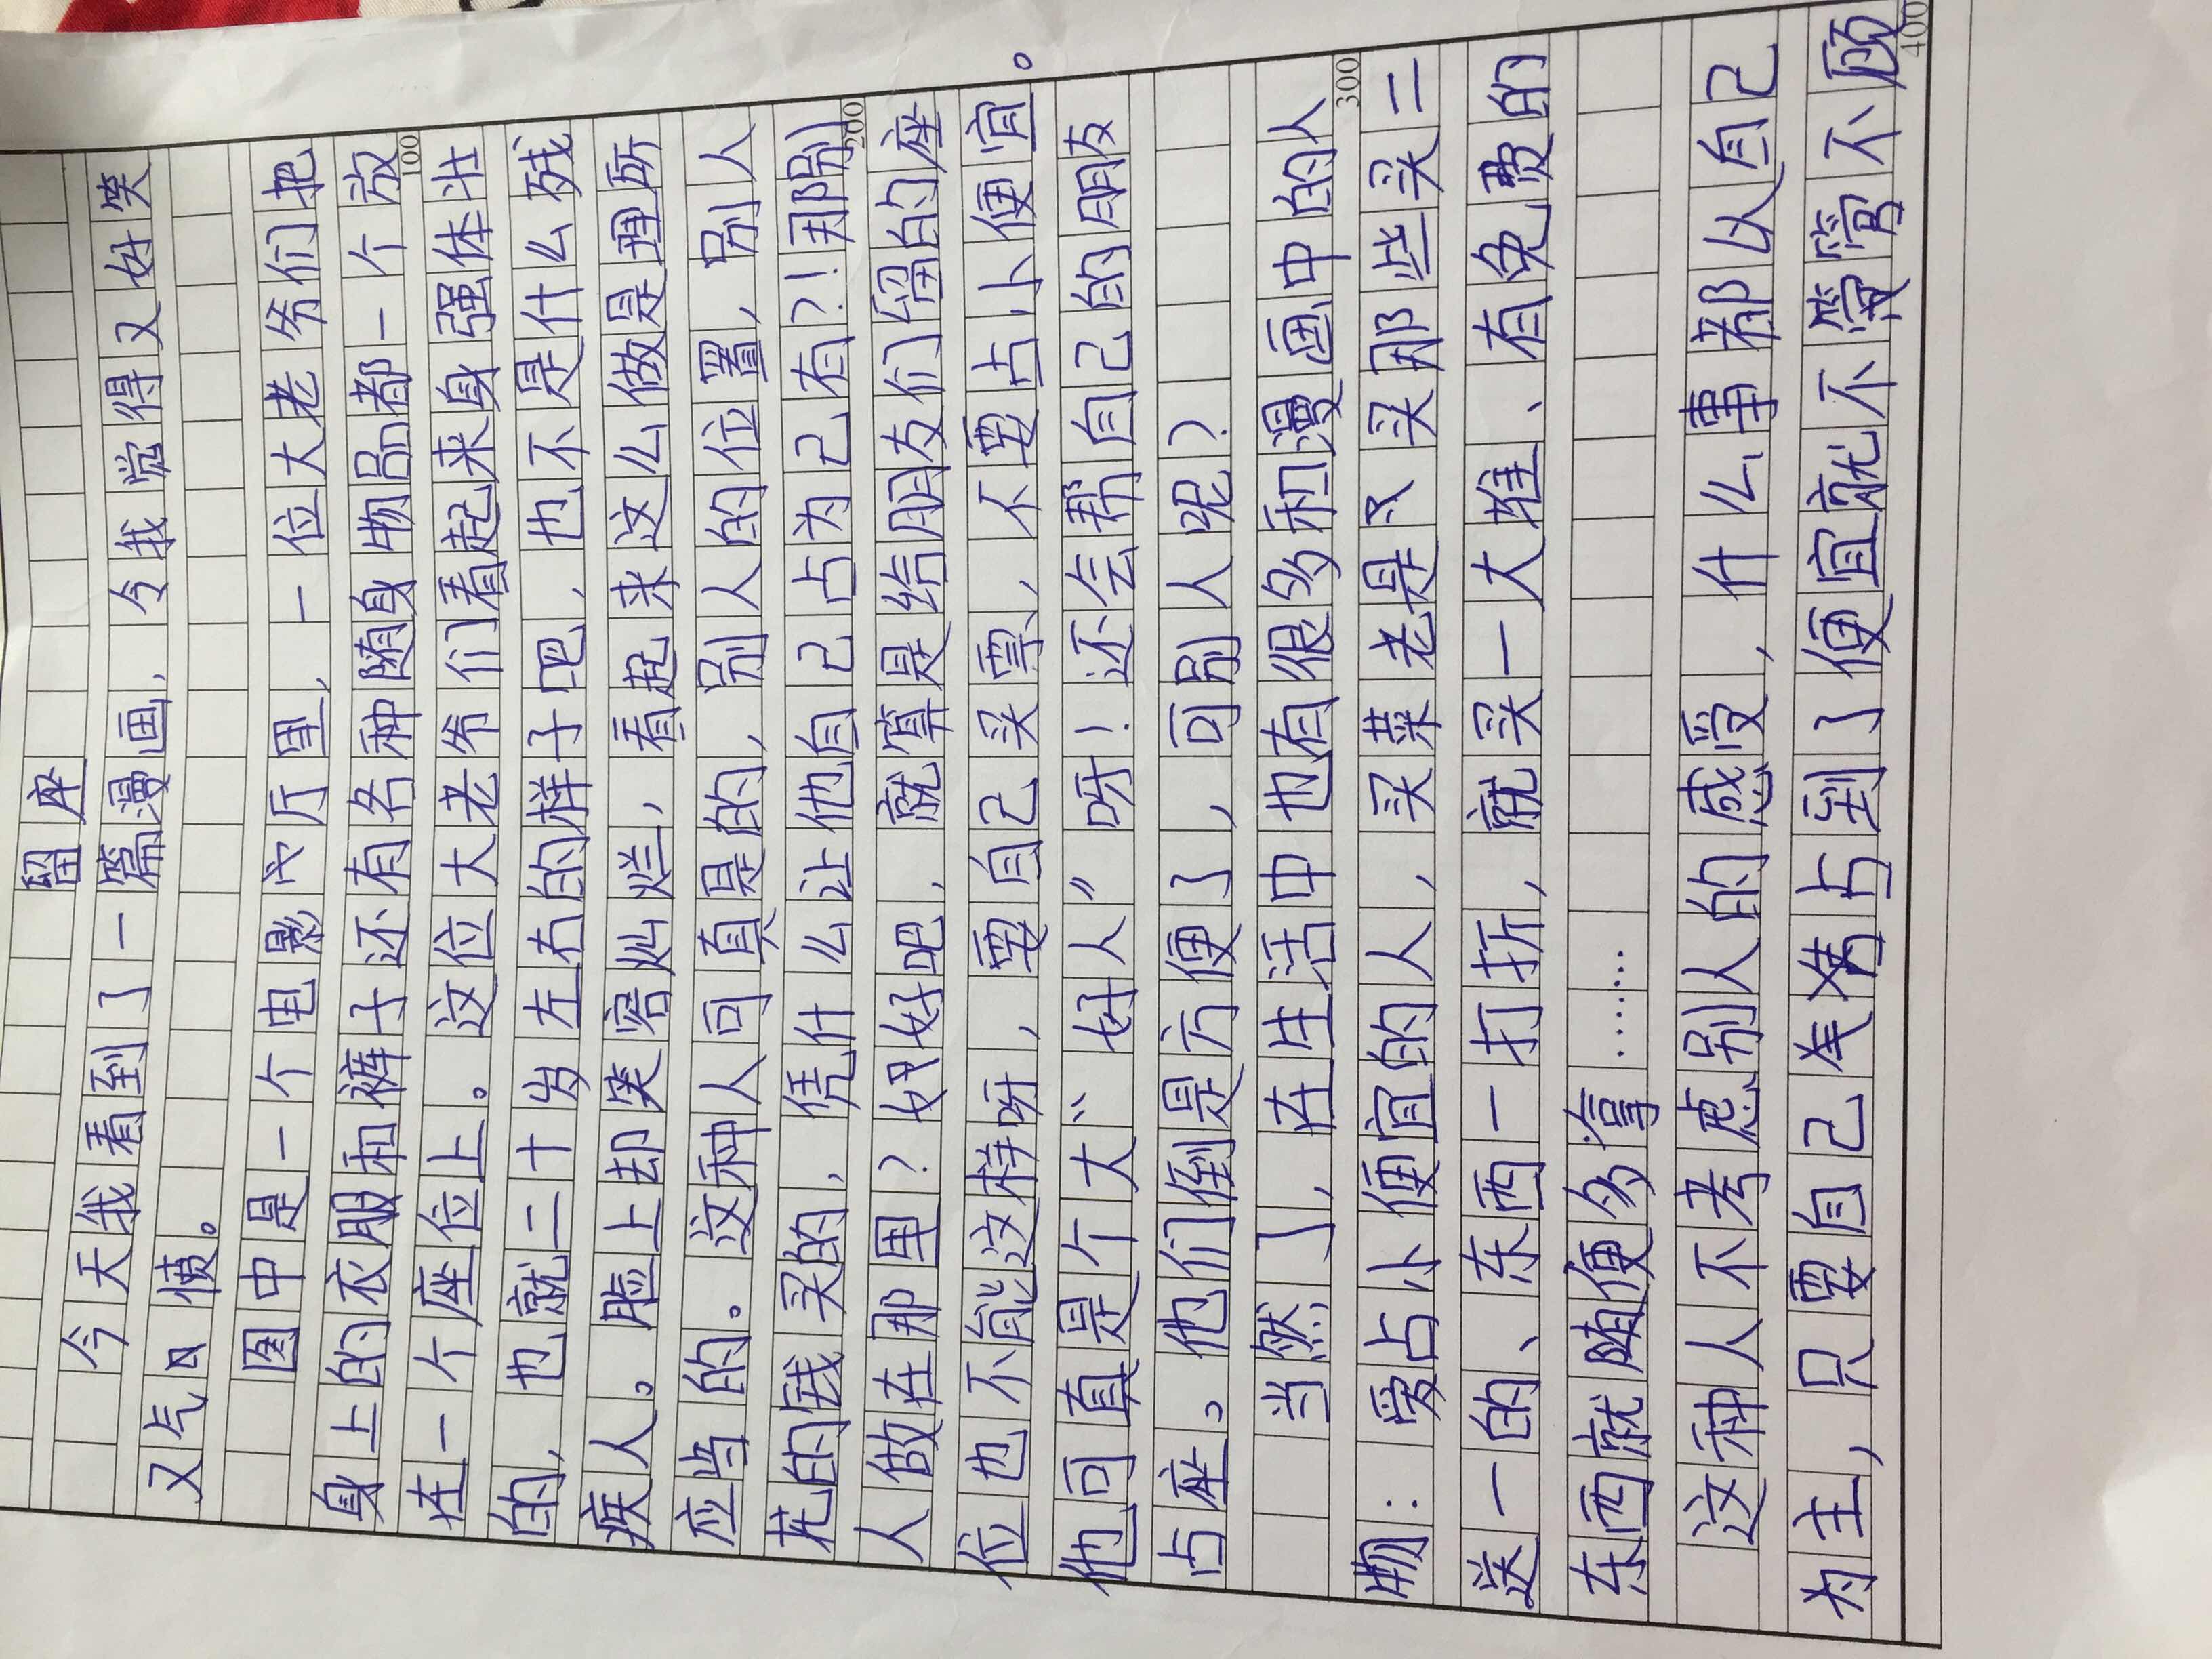 留座
今天我看到了一篇漫画，令我觉得又好笑
又气愤。
图中是一个电影大厅里，一位大老爷们把
身上的衣服和裤子还有各种随身物品都一个放
100
在一个座位上。这位大老爷们看起来身强体壮
的，也就二十岁左右的样子吧，也不是什么残
疾人。脸上却笑容灿烂，看起来这么做是理所
应当的。这种人可真是的，别人的位置，别人
花的钱买的，凭什么让他自己占为己有？！那别
200
人做在那里？好好吧，就算是给朋友们留的座
位也不能这样呀，要自己买票，不要占小便宜。
他可真是个大“好人”呀！还会帮自己的朋友
占座。他们倒是方便了，可别人呢？
当然了，在生活中也有很多和漫画中的人
300
物：爱占小便宜的人，买菜老是买那些买二
送一的、东西一打折，就买一大堆、有免费的
东西就随便多拿……
这种人不考虑别人的感受，什么事都以自己
为主，只要自己占到了便宜就不管不顾
400